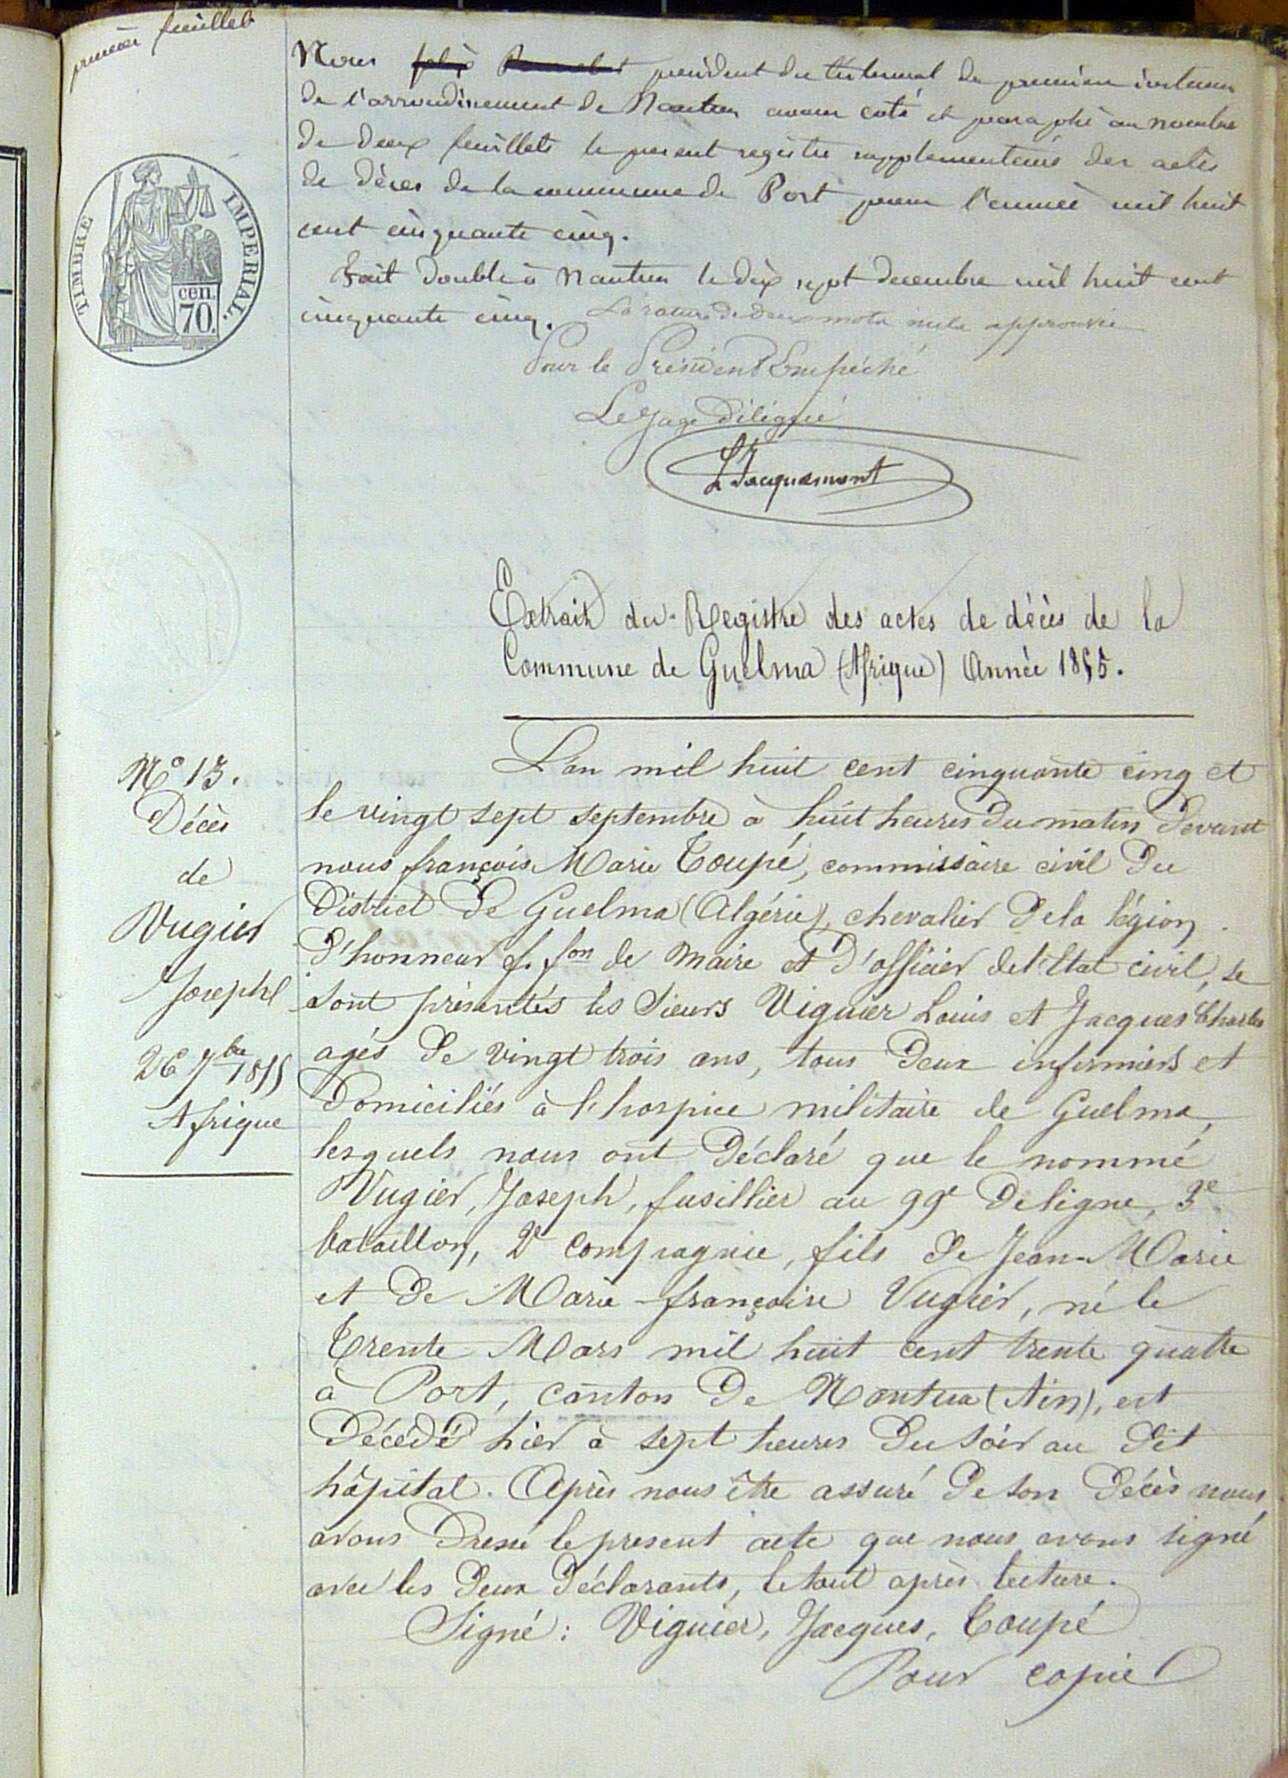 premier feuillet
Nous président du tribunal de première instance
de l'arrondissement de Nantua avons coté et paraphé au nombre
de deux feuillets le present registre supplementaire des actes
de décès de la commune de Port pour l'année mil huit
cent cinquante cinq.
Fait double à Nantua le dix sept decembre mil huit cent
cinquante cinq. La rature de deux mots nuls approuvée
Pour le Président Empêché
Le Juge Délégué
Jacquemont
TIMBRE IMPERIAL.
cen.
70.
Extrait du Registre des actes de décès de la
Commune de Guelma (Afrique) Année 1855.
N° 13.
Décès
de
Vugier
Joseph
26 7bre 1855
Afrique
L'an mil huit cent cinquante cinq et
le vingt sept septembre à huit heures du matin devant
nous françois Marie Toupé, commissaire civil du
District de Guelma (Algérie), chevalier de la légion
d'honneur f. fon de Maire et d'officier de l'Etat civil, se
sont présentés les sieurs Viguier Louis et Jacques Charles
agés de vingt trois ans, tous deux infirmiers et
domiciliés à l'hospice militaire de Guelma,
lesquels nous ont déclaré que le nommé
Vugier, Joseph, fusillier au 99e de ligne, 3e
bataillon, 2e compagnie, fils de Jean-Marie
et de Marie-françoise Vugier, né le
Trente Mars mil huit cent trente quatre
à Port, canton de Nantua (Ain), est
décédé hier à sept heures du soir au dit
hôpital. Après nous être assuré de son décès nous
avons dressé le present acte que nous avons signé
avec les deux déclarants, le tout après lecture.
Signé : Viguier, Jacques, Toupé
Pour copie